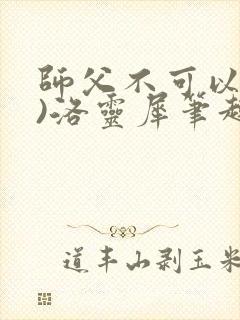 師父不可以
)洛靈犀筆趣
道丰山剥玉米